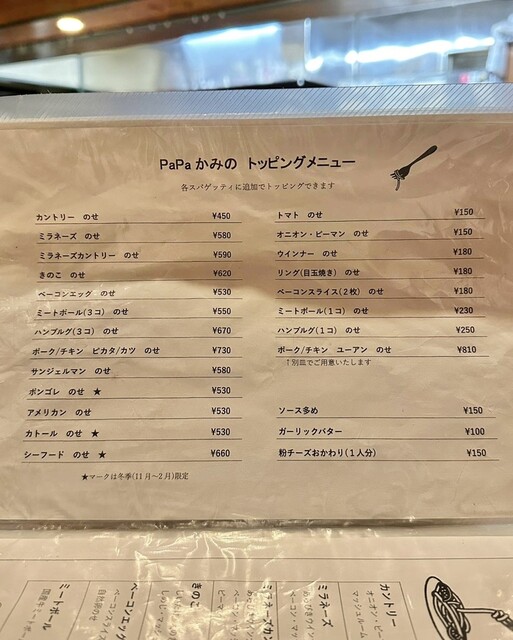 PaPa かみの トッピングメニュー
各スパゲッティに追加でトッピングできます
カントリー のせ ¥450
ミラネーズ のせ ¥580
ミラネーズカントリー のせ ¥590
きのこ のせ ¥620
ベーコンエッグ のせ ¥530
ミートボール(3コ) のせ ¥550
ハンブルグ(3コ) のせ ¥670
ポーク/チキン ピカタ/カツ のせ ¥730
サンジェルマン のせ ¥580
ボンゴレ のせ ★ ¥530
アメリカン のせ ¥530
カトール のせ ★ ¥530
シーフード のせ ★ ¥660
★マークは冬季(11月~2月)限定
トマト のせ ¥150
オニオン・ピーマン のせ ¥150
ウインナー のせ ¥180
リング(目玉焼き) のせ ¥180
ベーコンスライス(2枚) のせ ¥180
ミートボール(1コ) のせ ¥230
ハンブルグ(1コ) のせ ¥250
ポーク/チキン ユーアン のせ ¥810
↑別皿でご用意いたします
ソース多め ¥150
ガーリックバター ¥100
粉チーズおかわり(1人分) ¥150
カントリー
オニオン・ピー
マッシュルーム
ミラネーズ
きのこ
ベーコンエッグ
ベーコンスライス
ミートボール